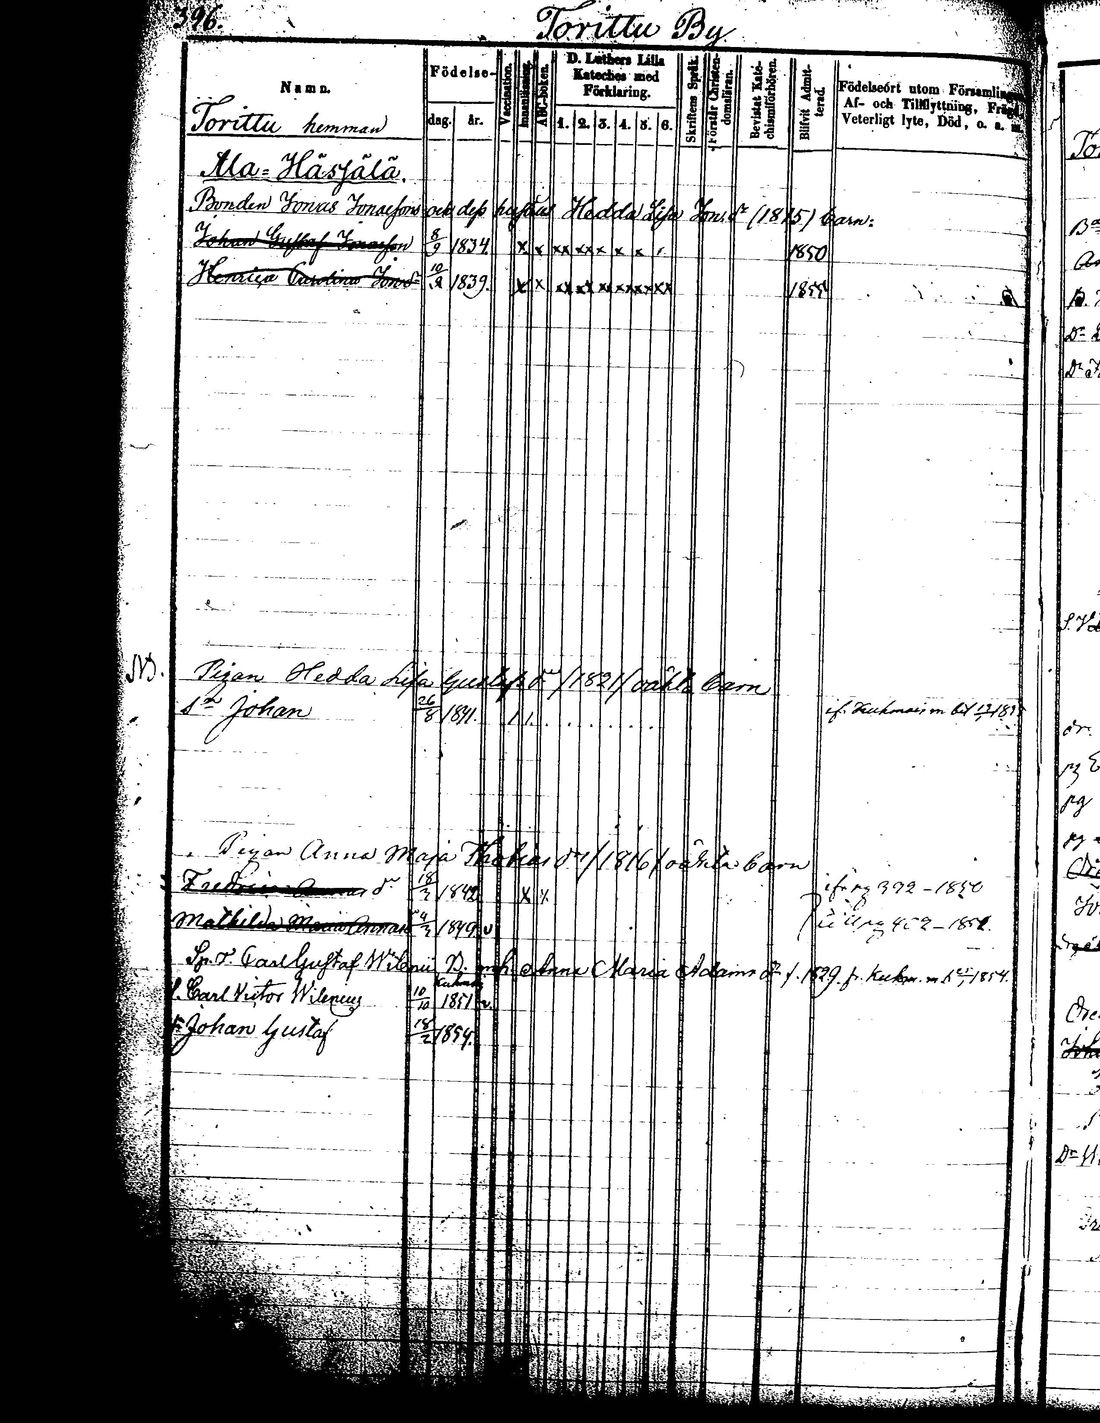 396.
Torittu By
Namn.
Födelse-
dag. år.
Vaccination.
Innanläsning.
ABC-boken.
D. Luthers Lilla Kateches med Förklaring.
1. 2. 3. 4. 5. 6.
Skriftens Språk.
Förstår Christendomsläran.
Bevistat Katechismiförhören.
Blifvit Admitterad.
Födelseort utom Församlingen, Af- och Tillflyttning, Frägd, Veterligt lyte, Död, o. a. m.
Torittu hemman
Ala=Häsjälä.
Bonden Jonas Jonaesson och dess hustrus Hedda Lisa Jons dr (1815) barn:
Johan Gustaf Jonasson 8/9 1834. x x xx xx x x x 1850
Henrica Carolina Jons dr 10/2 1839. x x xx xx xx xx xx xx 1855
NB.
Pigan Hedda Lisa Gustafs dr /1821/ oäkta barn
sn Johan 26/8 1841.
Pigan Anna Maja Thobias dr /1816/ oäkta barn
Fredrica Annas dr 18/2 1842 x x ifr pg 392 - 1850
Mathilda Maria Annas 4/2 1849. v till pg 452 - 1851.
Carl Gustaf Wileni Anna Maria Adams dr f. 1829. fr. Kuhm. 1854.
s. Carl Victor Wilenius 10/10 1851 v.
s. Johan Gustaf 18/2 1854.